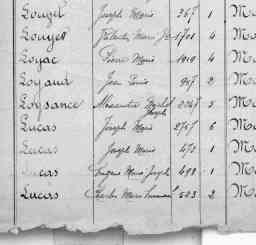 Louzil Joseph Marie 367 1 Mo
Louyer 1701 4 Mo
Loyac Pierre Marie 1919 4 Mo
Loyaud Jean Louis 957 2 Mo
Loysance Alexandre Joseph 2047 5 Mo
Lucas Joseph Marie 2757 6 Mo
Lucas Joseph Marie 472 1 Mo
Lucas Eugène Marie Joseph 498 1 Mo
Lucas Charles Marie 503 2 Mo